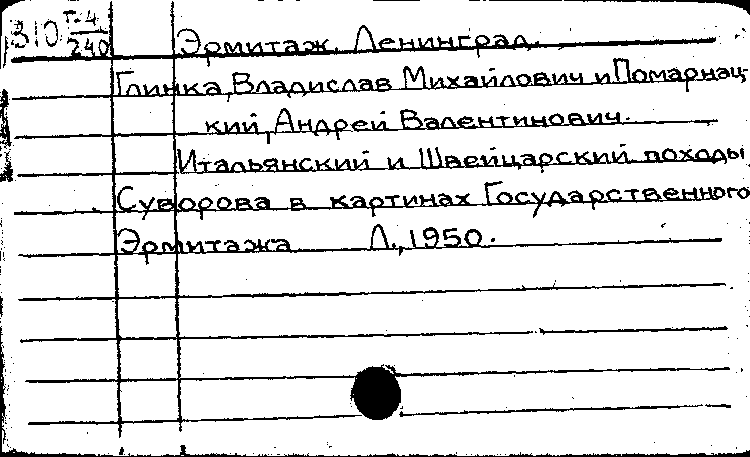 310 Г-4/240 Эрмитаж. Ленинград.
Глинка, Владислав Михайлович и Помарнац-
кий, Андрей Валентинович.
Итальянский и Швейцарский походы
Суворова в картинах Государственного
Эрмитажа Л., 1950.